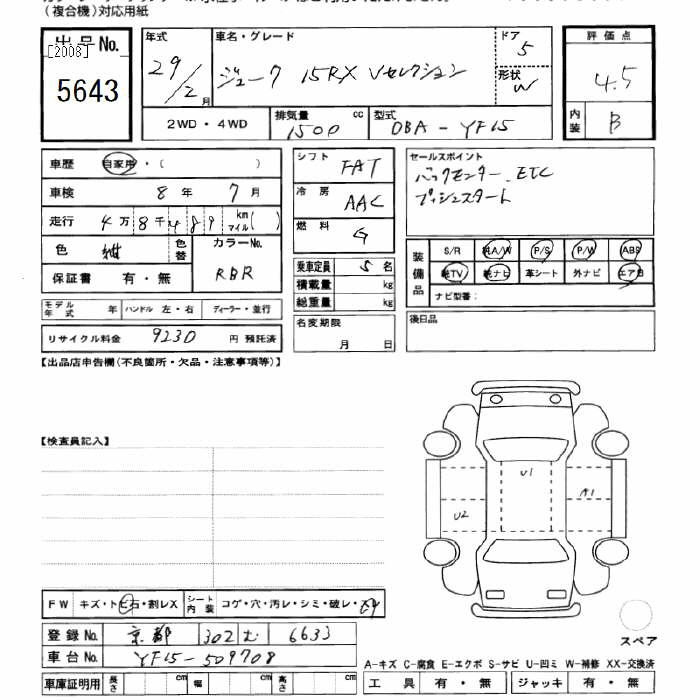 (複合機)対応用紙
出品No.
[2008]
5643
年式
29/2月
車名・グレード
ジューク 15RX Vセレクション
ドア
5
形状
W
評価点
4.5
内装
B
2WD・4WD
排気量 cc
1500
型式
DBA-YF15
車歴 自家用・( )
車検 8年 7月
走行 4万8千489 km マイル( )
色 紺
色替
カラーNo.
RBR
保証書 有・無
モデル年式 年 ハンドル 左・右 ディーラー・並行
リサイクル料金 9230 円 預託済
シフト FAT
冷房 AAC
燃料 G
乗車定員 5名
積載量 kg
総重量 kg
名変期限
月 日
セールスポイント
バックモニター、ETC
プッシュスタート
装備品
S/R 純A/W P/S P/W ABS
純TV 純ナビ 革シート 外ナビ エアB
ナビ型番:
後日品
【出品店申告欄(不良箇所・欠品・注意事項等)】
【検査員記入】
U1
A1
U2
スペア
FW キズ・トビ石・割レX シート内装 コゲ・穴・汚レ・シミ・破レ・スレ
登録No. 京都 302 む 6633
車台No. YF15-509708
車庫証明用 長さ cm 幅 cm 高さ cm
A-キズ C-腐食 E-エクボ S-サビ U-凹ミ W-補修 XX-交換済
工具 有・無 ジャッキ 有・無